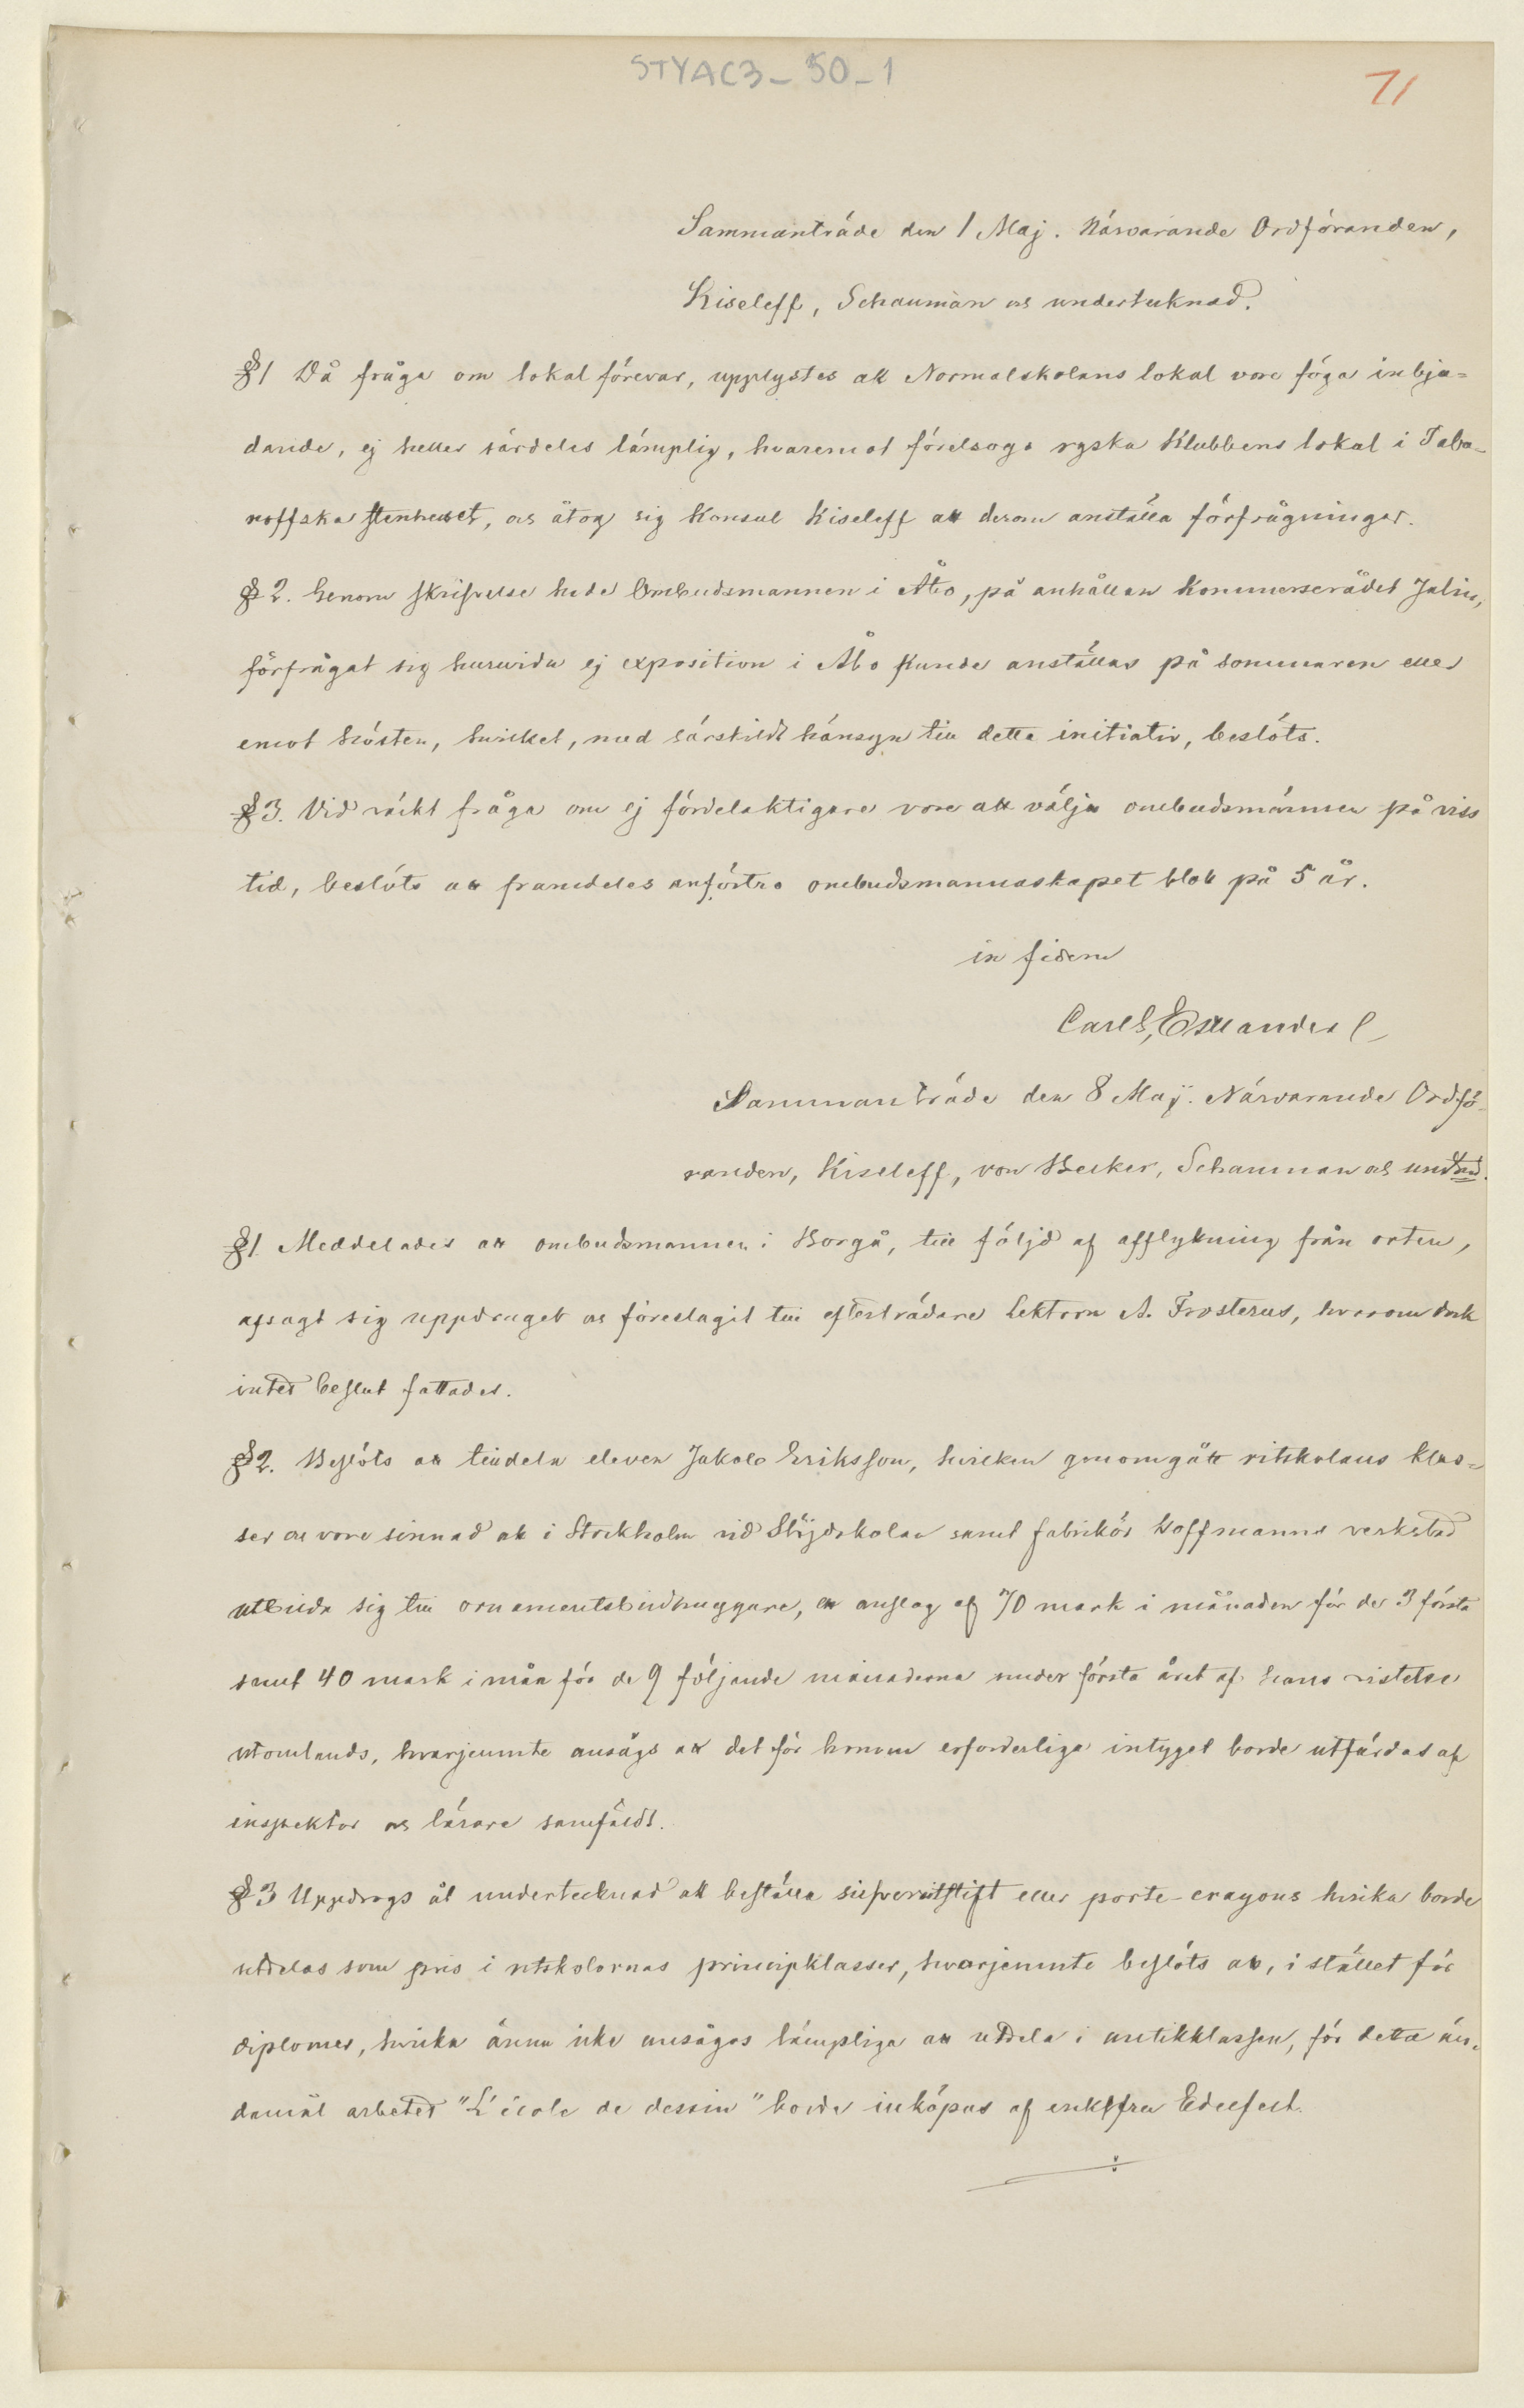 STYAC3-50-1
71
Sammanträde den 1 Maj. Närvarande Ordföranden,
Kiseleff, Schauman os undertecknad.
§1 Då fråga om lokal förevar, upplystes att Normalskolans lokal vore föga inbju=
dande, ej heller särdeles lämplig, hvaremot föreslogs ryska Klubbens lokal i Taba-
noffska stenhuset, os åtog sig Konsul Kiseleff att derom anställa förfrågningar.
§ 2. Genom skrifvelse hade Ombudsmannen i Åbo, på anhållan Kommerserådet Julin,
förfrågat sig huruvida ej exposition i Åbo kunde anställas på sommaren eller
emot hösten, hvilket, med särskildt hänsyn till detta initiativ, beslöts.
§ 3. Vid väckt fråga om ej fördelaktigare vore att välja ombudsmännen på viss
tid, beslöts att framdeles anförtro ombudsmannaskapet blott på 5 år.
in fidem
Carl G, Estlander
Sammanträde den 8 Maj. Närvarande Ordfö-
randen, Kiseleff, von Becker, Schauman os undtnd.
§1 Meddelades att ombudsmannen i Borgå, till följd af afflyttning från orten,
afsagt sig uppdraget os föreslagit till efterträdare Lektorn A. Frosterus, hvarom dock
intet beslut fattades.
§2. Beslöts att tilldela eleven Jakob Eriksson, hvilken genomgått ritskolans klas=
ser os vore sinnad att i Stockholm vid Slöjdskolan samt fabrikör Hoffmanns verkstad
utbilda sig till ornamentsbildhuggare, ett anslag af 70 mark i månaden för de 3 första
samt 40 mark i mån för de 9 följande månaderna under första året af hans vistelse
utomlands, hvarjemnte ansågs att det för honom erforderliga intyget borde utfärdas af
inspektor os lärare samfäldt.
§ 3 Uppdrogs åt undertecknad att beställa silfverritstift eller porte-crayons hvilka borde
utdelas som pris i ritskolornas principklasser, hvarjemnte beslöts att, i stället för
diplomer, hvilka ännu icke ansågos lämpliga att utdela i antikklassen, för detta än-
damål arbetet "L'école de dessin" borde inköpas af enkefru Edelfelt.